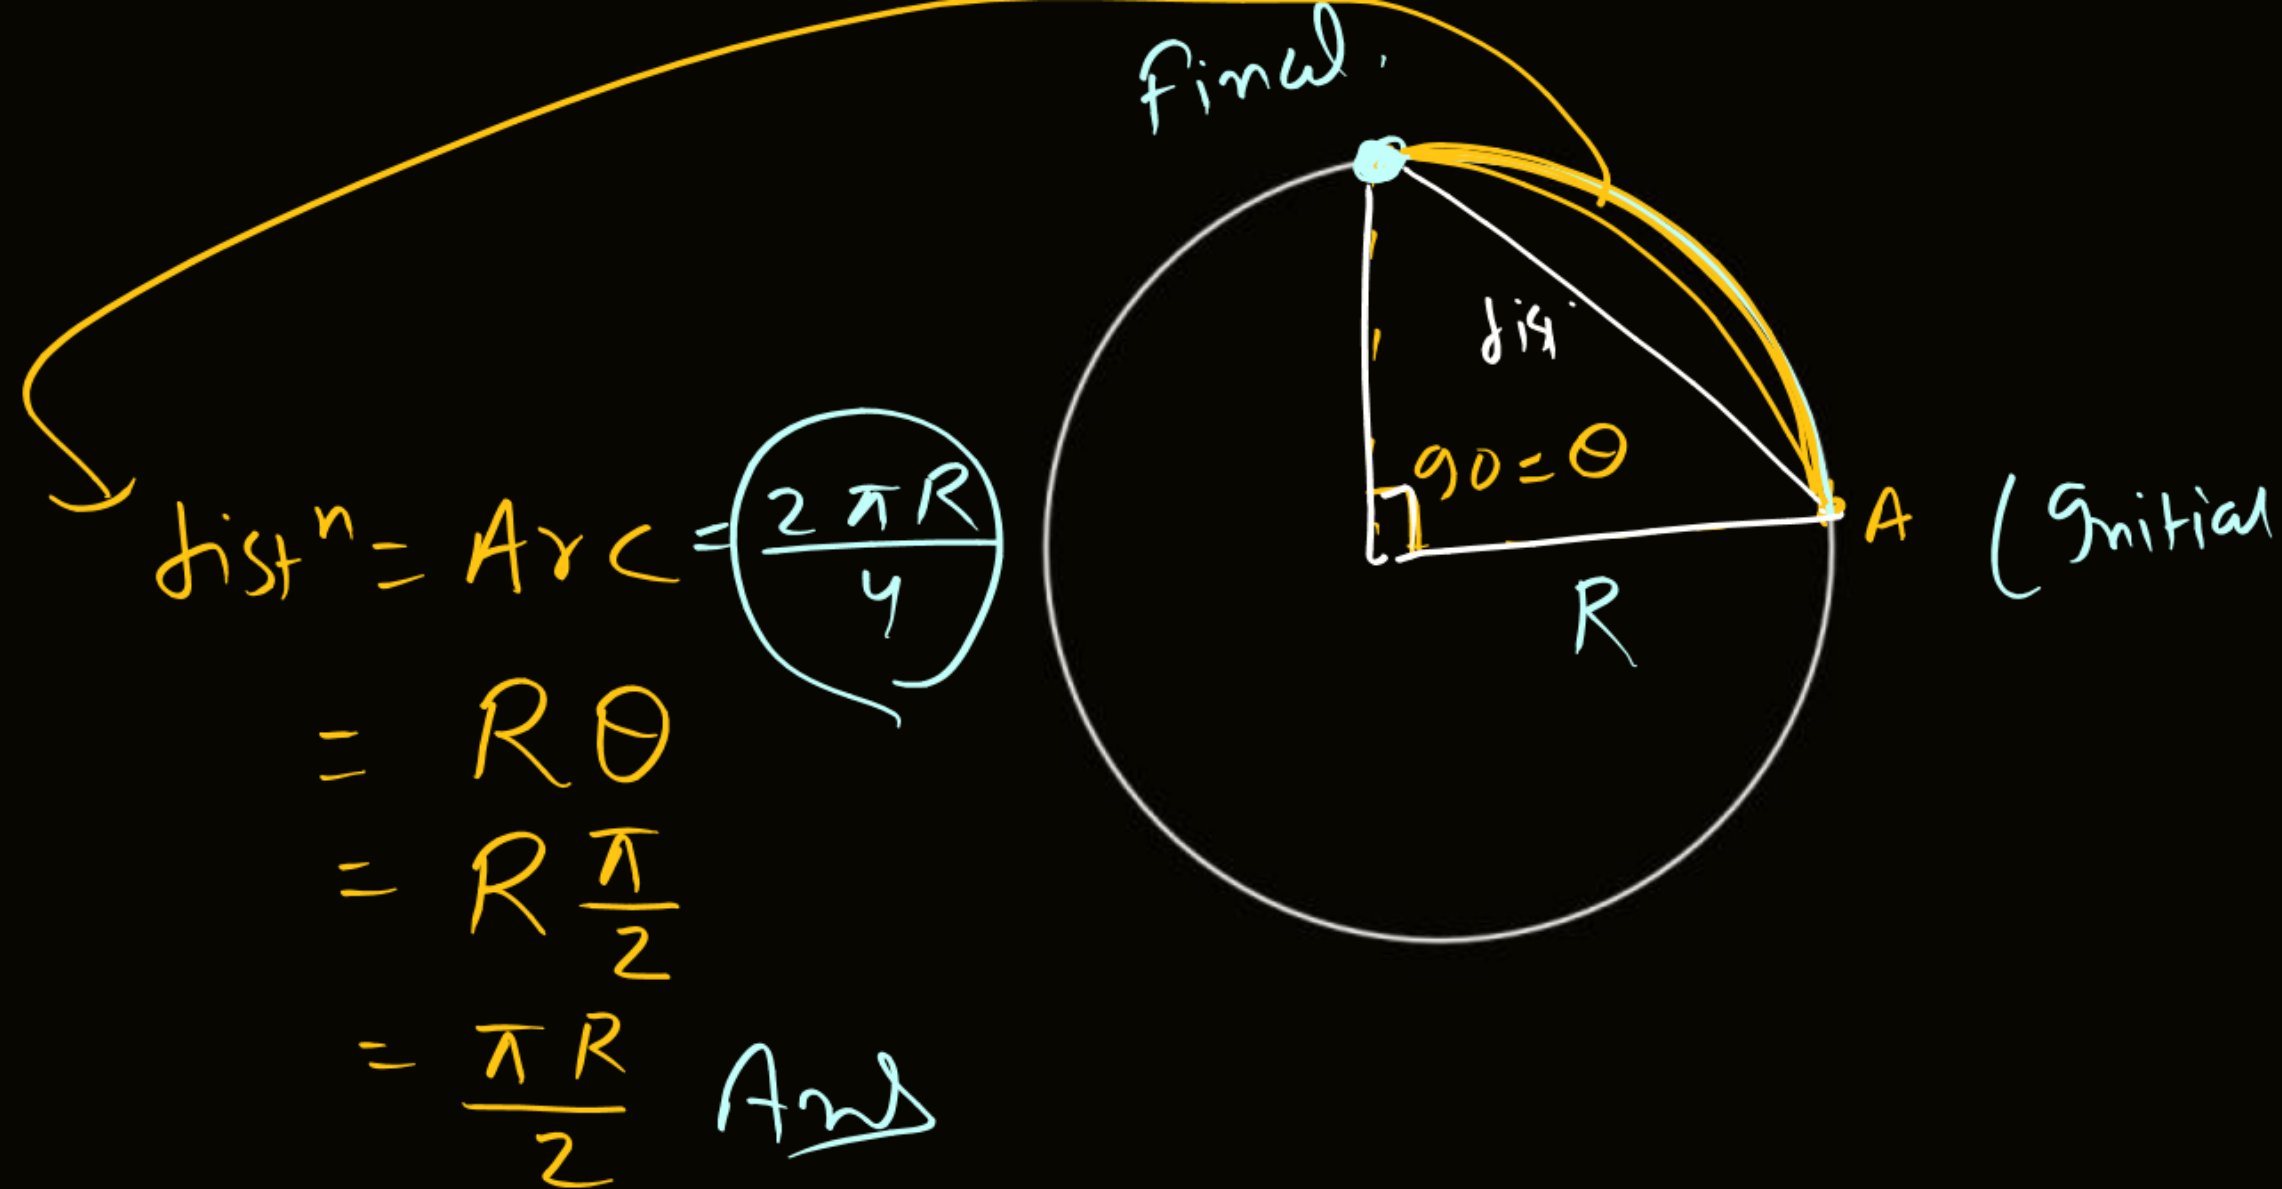 Final.
dis.
90 = θ
A (Initial
R
distⁿ = Arc = 2πR/4
= Rθ
= R π/2
= πR/2 Ans